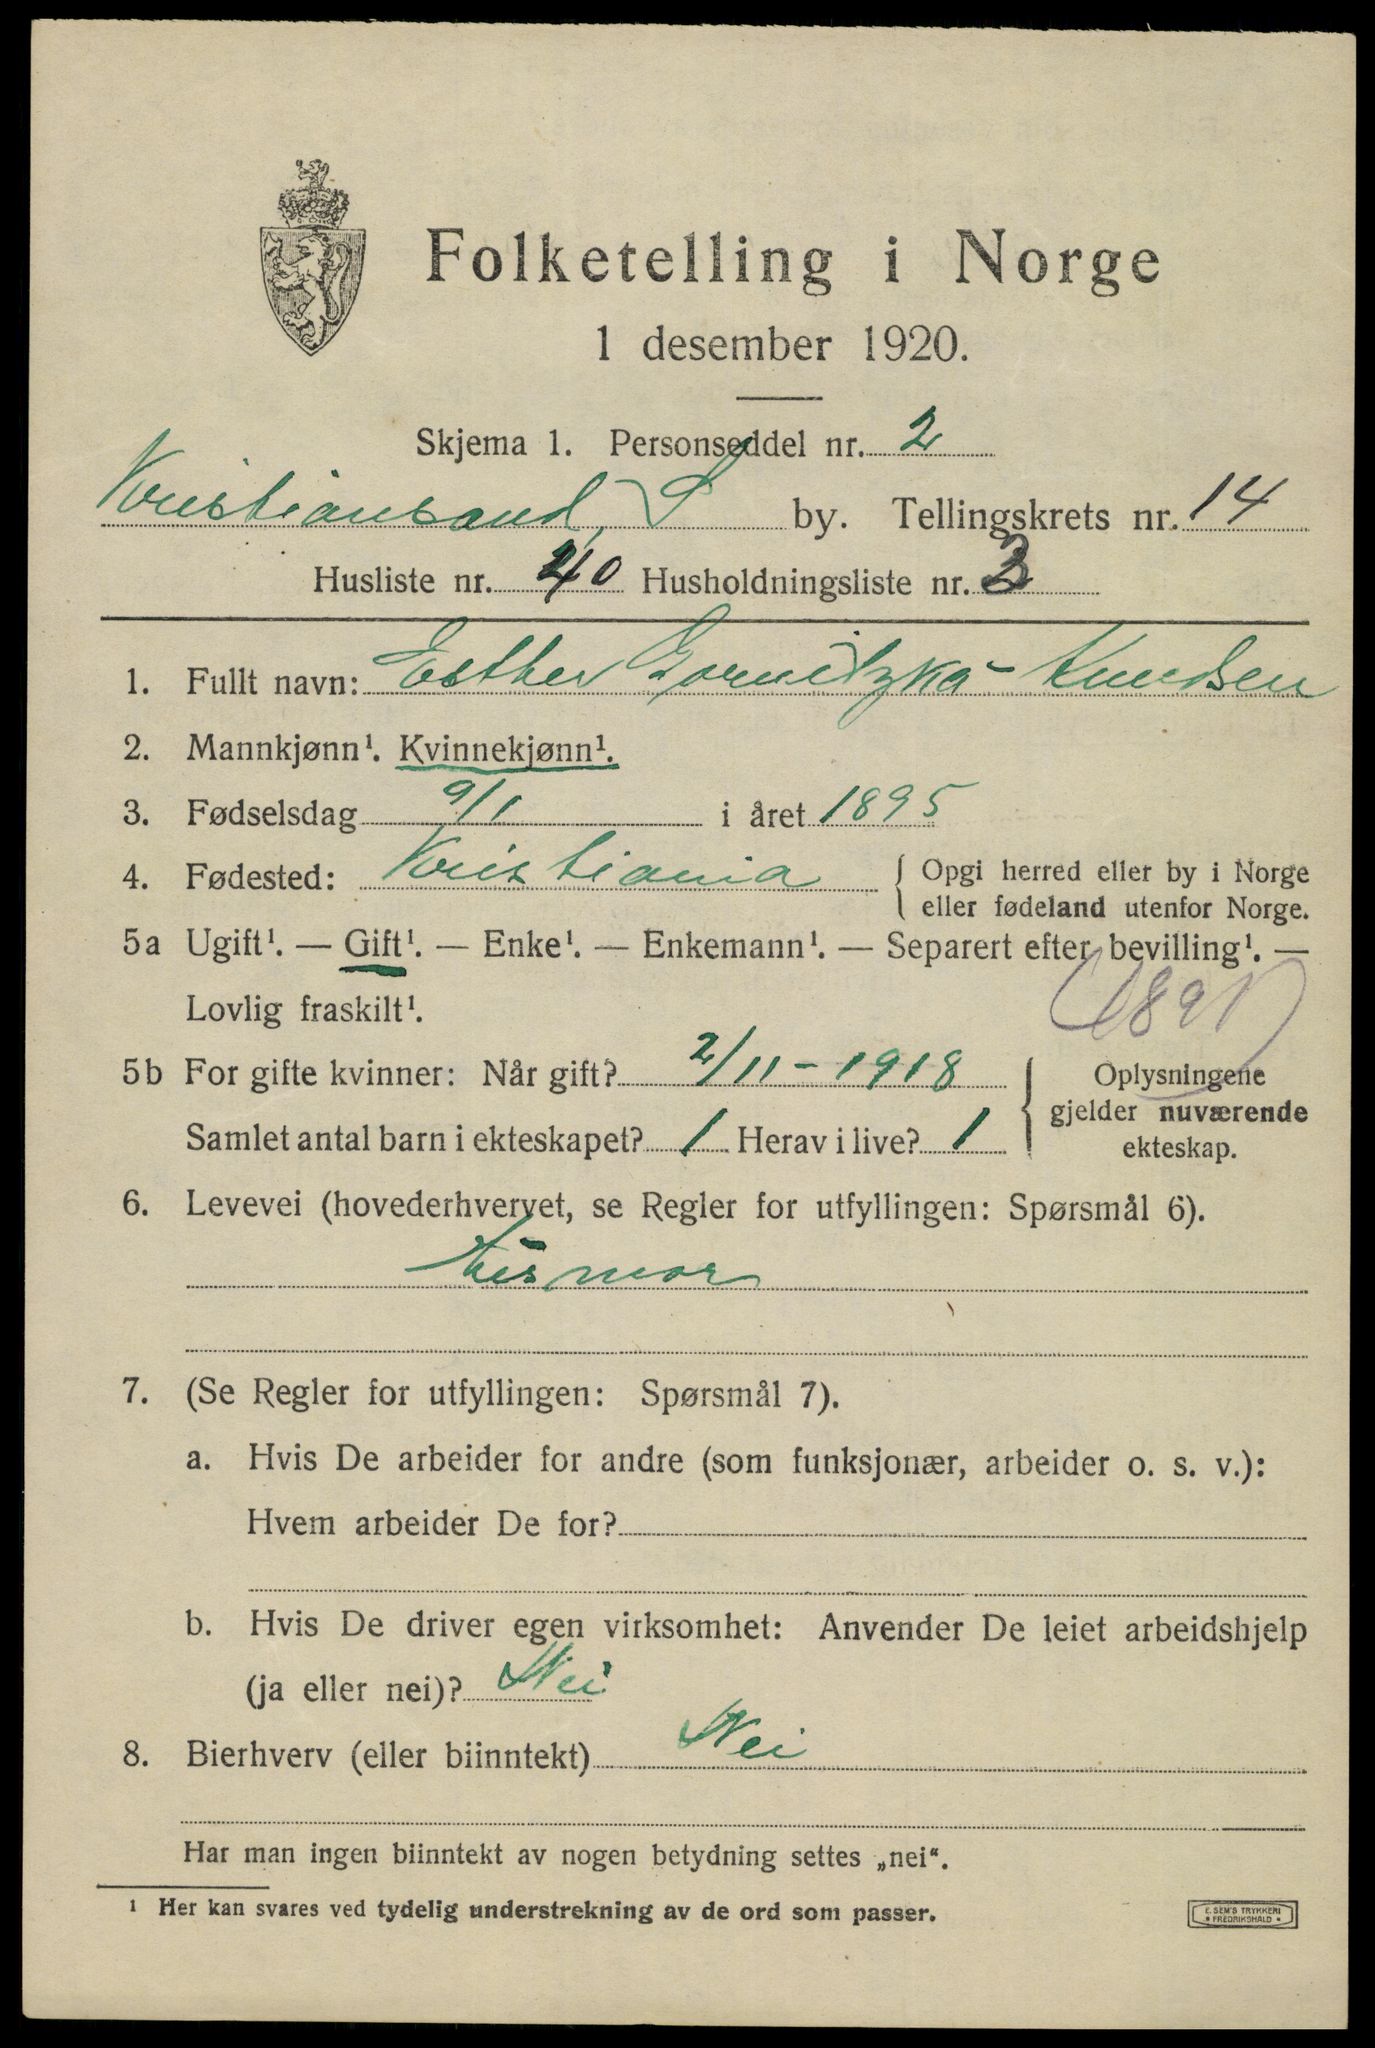 Folketelling i Norge
1 desember 1920.
Skjema 1. Personseddel nr. 2
Kristiansand, S by. Tellingskrets nr. 14
Husliste nr. 40 Husholdningsliste nr. 3
1. Fullt navn: Esther Gornitzka-Knudsen
2. Mannkjønn¹. Kvinnekjønn¹.
3. Fødselsdag 9/1 i året 1895
4. Fødested: Kristiania { Opgi herred eller by i Norge
eller fødeland utenfor Norge.
5a Ugift¹. — Gift¹. — Enke¹. — Enkemann¹. — Separert efter bevilling¹. —
Lovlig fraskilt¹.
5b For gifte kvinner: Når gift? 2/11-1918
Samlet antal barn i ekteskapet? 1 Herav i live? 1
{ Oplysningene
gjelder nuværende
ekteskap.
6. Levevei (hovederhvervet, se Regler for utfyllingen: Spørsmål 6).
Husmor
7. (Se Regler for utfyllingen: Spørsmål 7).
a. Hvis De arbeider for andre (som funksjonær, arbeider o. s. v.):
Hvem arbeider De for?
b. Hvis De driver egen virksomhet: Anvender De leiet arbeidshjelp
(ja eller nei)? Nei
8. Bierhverv (eller biinntekt) Nei
Har man ingen biinntekt av nogen betydning settes „nei“.
¹ Her kan svares ved tydelig understrekning av de ord som passer.
E. SEM'S TRYKKERI
• FREDRIKSHALD •